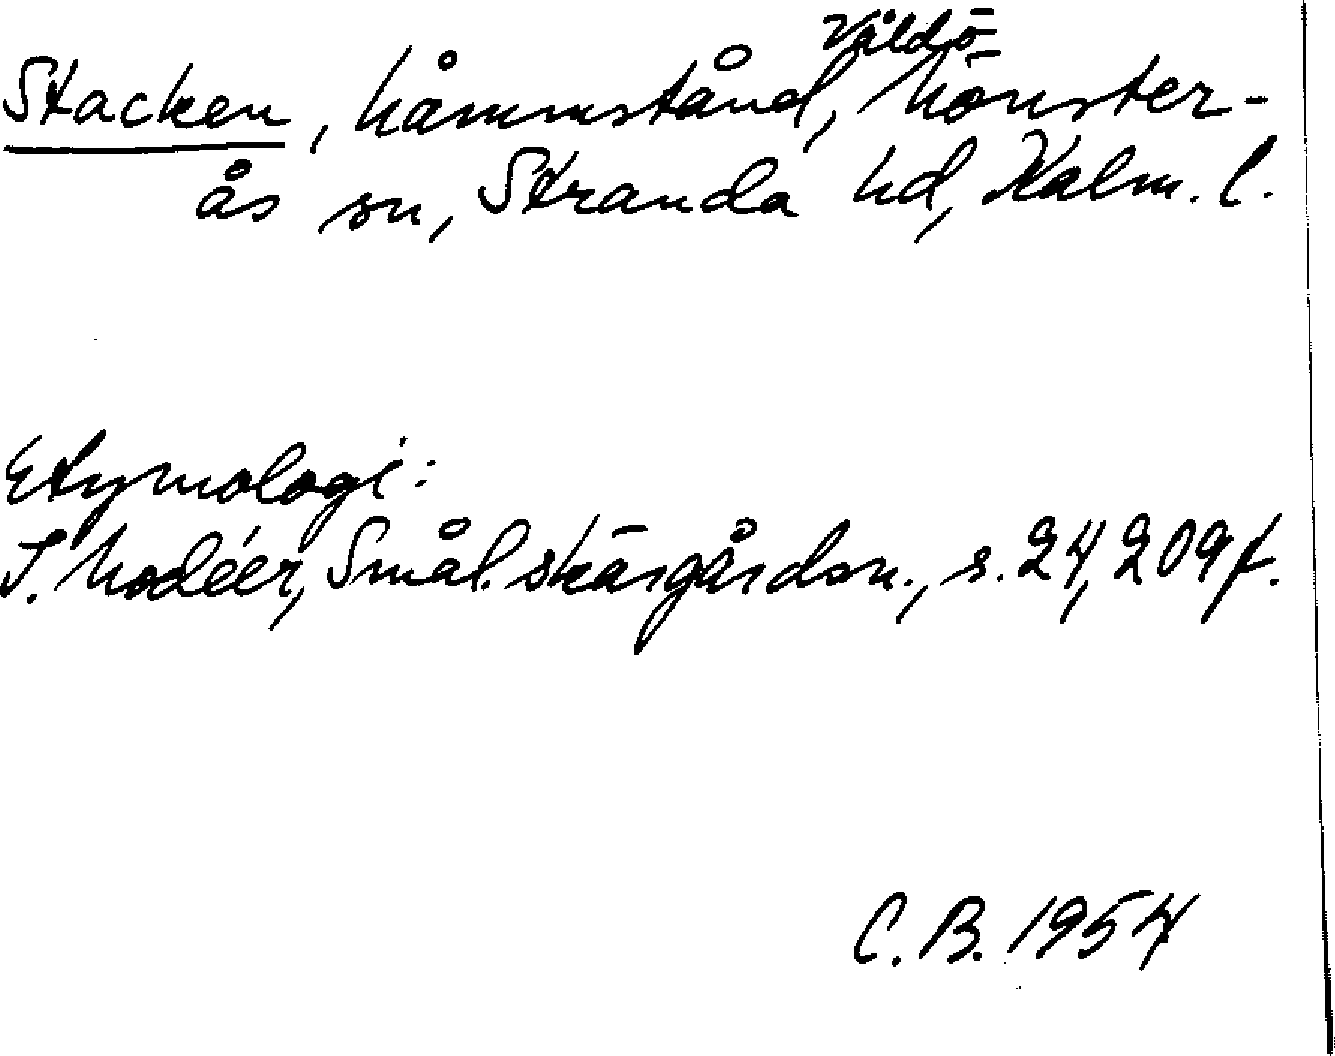 Väldö
Stacken, håmmstånd, Mönster-
ås sn, Stranda hd, Kalm. l.
Etymologi:
I. Modéer, Smål. skärgårdsn., s. 24, 209 f.
C. B. 1954